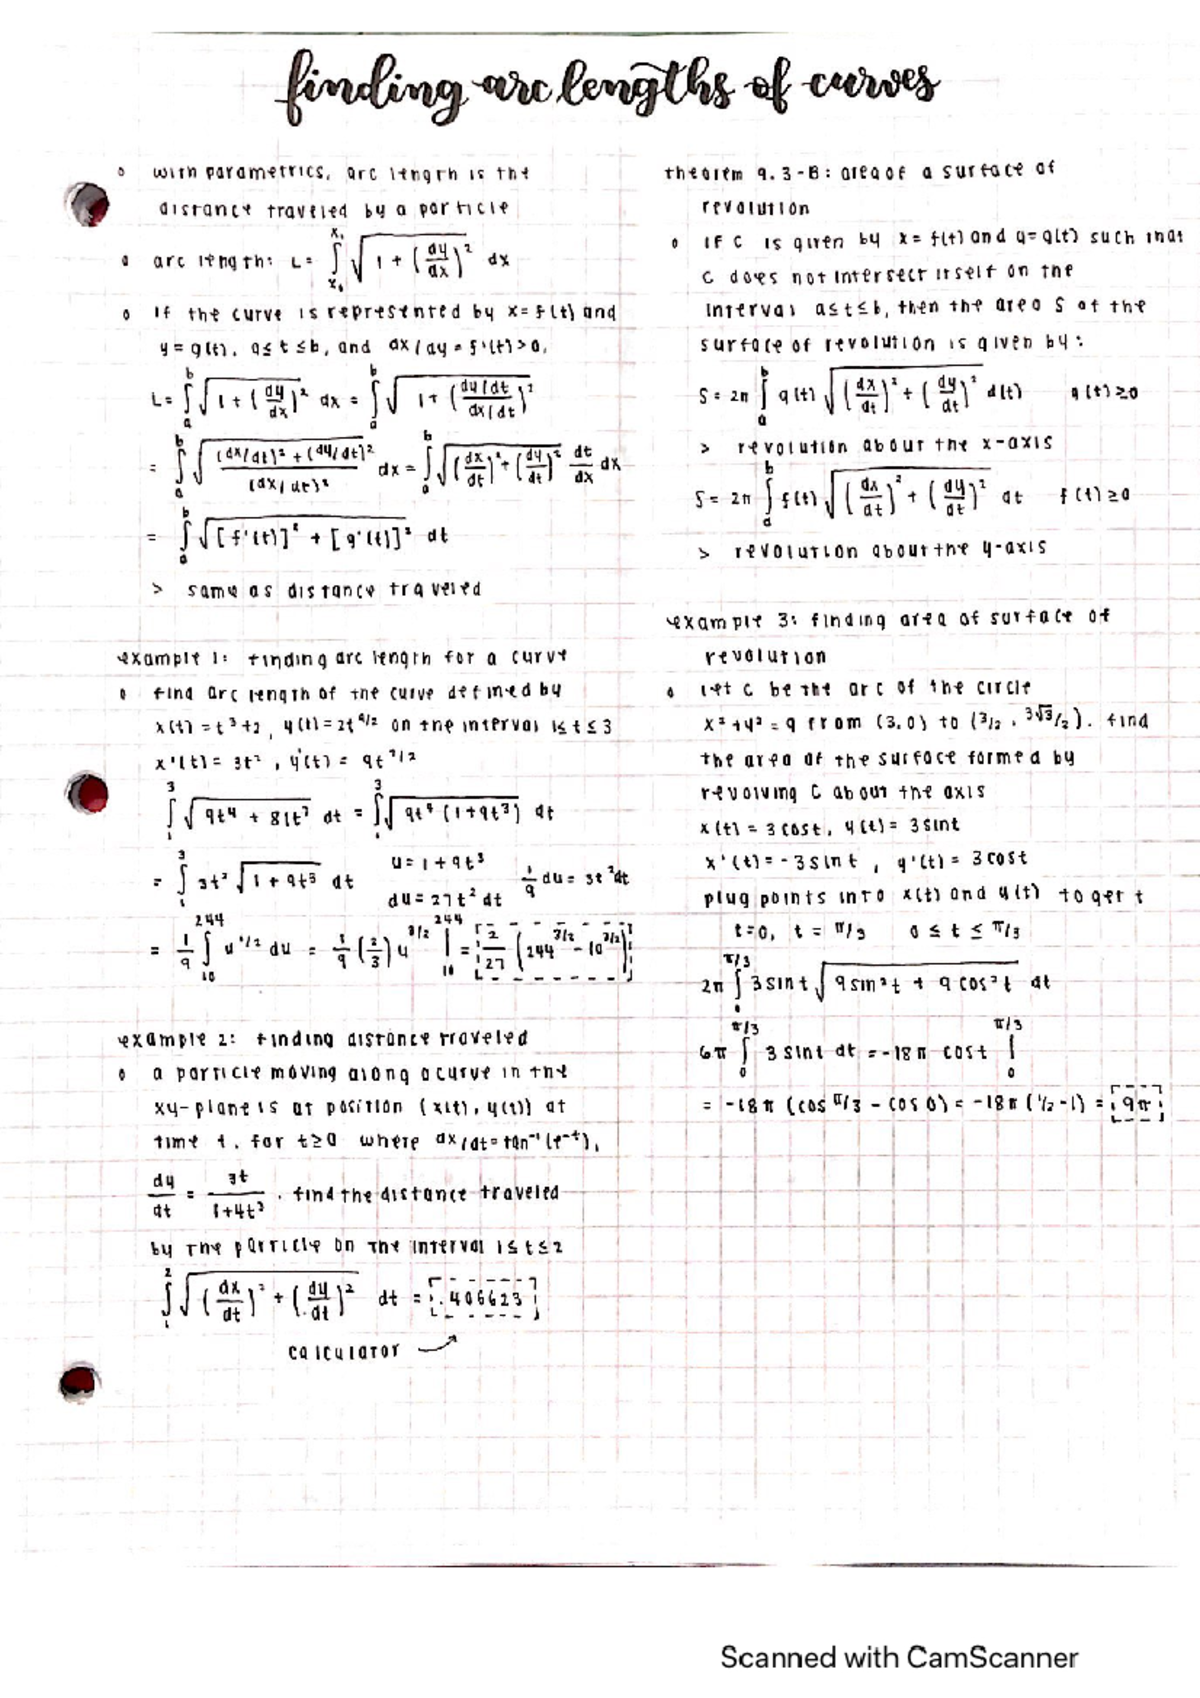 finding arc lengths of curves
o with parametrics, arc length is the
distance traveled by a particle
o arc length: L = ∫_{x₀}^{x₁} √(1 + (dy/dx)²) dx
o if the curve is represented by x = f(t) and
y = g(t), a ≤ t ≤ b, and dx/dy = f'(t) > 0,
L = ∫_a^b √(1 + (dy/dx)²) dx = ∫_a^b √(1 + (dy/dt / dx/dt)²)
= ∫_a^b √(((dx/dt)² + (dy/dt)²) / (dx/dt)²) dx = ∫_a^b √((dx/dt)² + (dy/dt)²) dt/dx dx
= ∫_a^b √([f'(t)]² + [g'(t)]²) dt
> same as distance traveled
example 1: finding arc length for a curve
o find arc length of the curve defined by
x(t) = t³ + 2, y(t) = 2t^{9/2} on the interval 1 ≤ t ≤ 3
x'(t) = 3t², y'(t) = 9t^{7/2}
∫_1^3 √(9t⁴ + 81t⁷) dt = ∫_1^3 √(9t⁴(1 + 9t³)) dt
= ∫_1^3 3t² √(1 + 9t³) dt u = 1 + 9t³ du = 27t² dt 1/9 du = 3t² dt
= 1/9 ∫_{10}^{244} u^{1/2} du = 1/9 (2/3) u^{3/2} |_{10}^{244} = 2/27 (244^{3/2} - 10^{3/2})
example 2: finding distance traveled
o a particle moving along a curve in the
xy-plane is at position (x(t), y(t)) at
time t. for t ≥ 0 where dx/dt = tan⁻¹(e^{-t}),
dy/dt = 3t/(1+4t³). find the distance traveled
by the particle on the interval 1 ≤ t ≤ 2
∫_1^2 √((dx/dt)² + (dy/dt)²) dt = .406623
calculator
theorem 9.3-B: area of a surface of
revolution
o if C is given by x = f(t) and y = g(t) such that
C does not intersect itself on the
interval a ≤ t ≤ b, then the area S of the
surface of revolution is given by:
S = 2π ∫_a^b g(t) √((dx/dt)² + (dy/dt)²) d(t) g(t) ≥ 0
> revolution about the x-axis
S = 2π ∫_a^b f(t) √((dx/dt)² + (dy/dt)²) dt f(t) ≥ 0
> revolution about the y-axis
example 3: finding area of surface of
revolution
o let C be the arc of the circle
x² + y² = 9 from (3,0) to (3/2, 3√3/2). find
the area of the surface formed by
revolving C about the axis
x(t) = 3cost, y(t) = 3sint
x'(t) = -3sint, y'(t) = 3cost
plug points into x(t) and y(t) to get t
t=0, t = π/3 0 ≤ t ≤ π/3
2π ∫_0^{π/3} 3sint √(9sin²t + 9cos²t) dt
6π ∫_0^{π/3} 3sint dt = -18π cost |_0^{π/3}
= -18π (cos π/3 - cos 0) = -18π (1/2 - 1) = 9π
Scanned with CamScanner